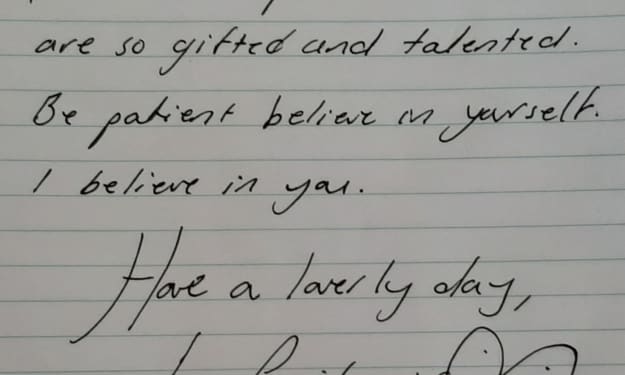 are so gifted and talented.
Be patient believe in yourself.
I believe in you.
Have a loverly day,